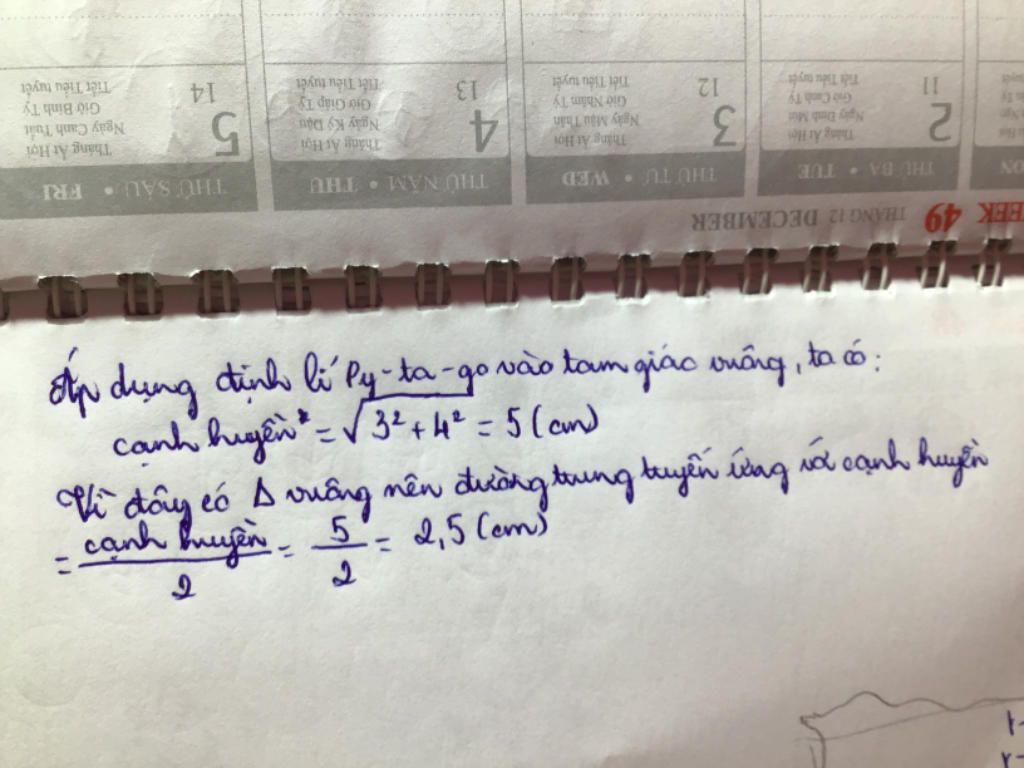 WEEK 49 THÁNG 12 DECEMBER
THỨ BA • TUE
THỨ TƯ • WED
THỨ NĂM • THU
THỨ SÁU • FRI
2
Tháng Ất Hợi
Ngày Đinh Mùi
Giờ Canh Tý
Tiết Tiểu tuyết
11
3
Tháng Ất Hợi
Ngày Mậu Thân
Giờ Nhâm Tý
Tiết Tiểu tuyết
12
4
Tháng Ất Hợi
Ngày Kỷ Dậu
Giờ Giáp Tý
Tiết Tiểu tuyết
13
5
Tháng Ất Hợi
Ngày Canh Tuất
Giờ Bính Tý
Tiết Tiểu tuyết
14
Áp dụng định lí Py-ta-go vào tam giác vuông, ta có:
cạnh huyền = √3² + 4² = 5 (cm)
Vì đây có Δ vuông nên đường trung tuyến ứng với cạnh huyền
= cạnh huyền / 2 = 5 / 2 = 2,5 (cm)